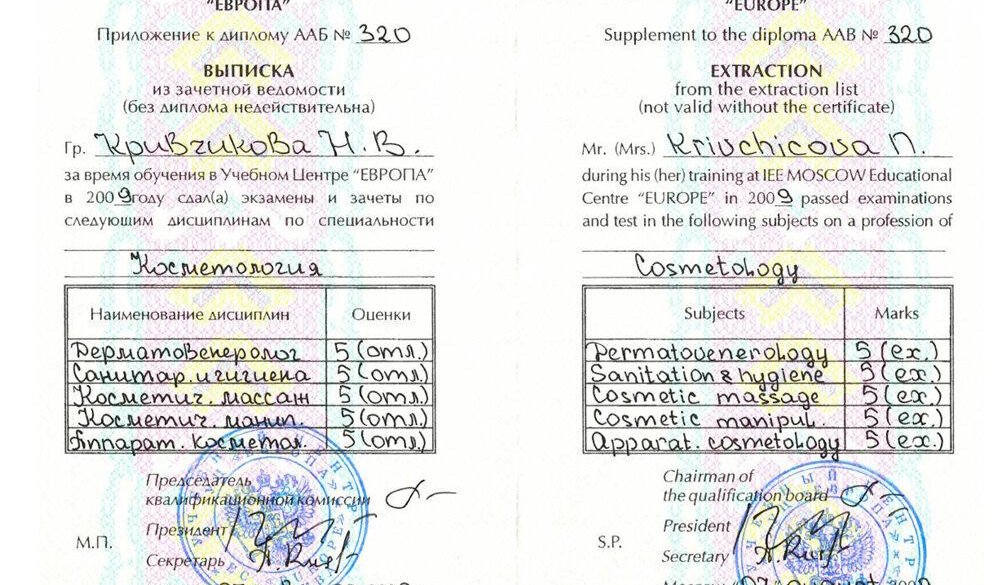 "ЕВРОПА"
Приложение к диплому ААБ № 320
ВЫПИСКА
из зачетной ведомости
(без диплома недействительна)
Гр. Кривчикова Н. В.
за время обучения в Учебном Центре "ЕВРОПА"
в 2009 году сдал(а) экзамены и зачеты по
следующим дисциплинам по специальности
Косметология
Наименование дисциплин Оценки
Дерматовенеролог 5 (отл.)
Санитар. и гигиена 5 (отл.)
Косметич. массаж 5 (отл.)
Косметич. манип. 5 (отл.)
Аппарат. косметол. 5 (отл.)
Председатель
квалификационной комиссии
Президент
Секретарь
М.П.
"EUROPE"
Supplement to the diploma AAB № 320
EXTRACTION
from the extraction list
(not valid without the certificate)
Mr. (Mrs.) Krivchicova N.
during his (her) training at IEE MOSCOW Educational
Centre "EUROPE" in 2009 passed examinations
and test in the following subjects on a profession of
Cosmetology
Subjects Marks
Dermatovenerology 5 (ex.)
Sanitation & hygiene 5 (ex.)
Cosmetic massage 5 (ex.)
Cosmetic manipul. 5 (ex.)
Apparat. cosmetology 5 (ex.)
Chairman of
the qualification board
President
Secretary
S.P.